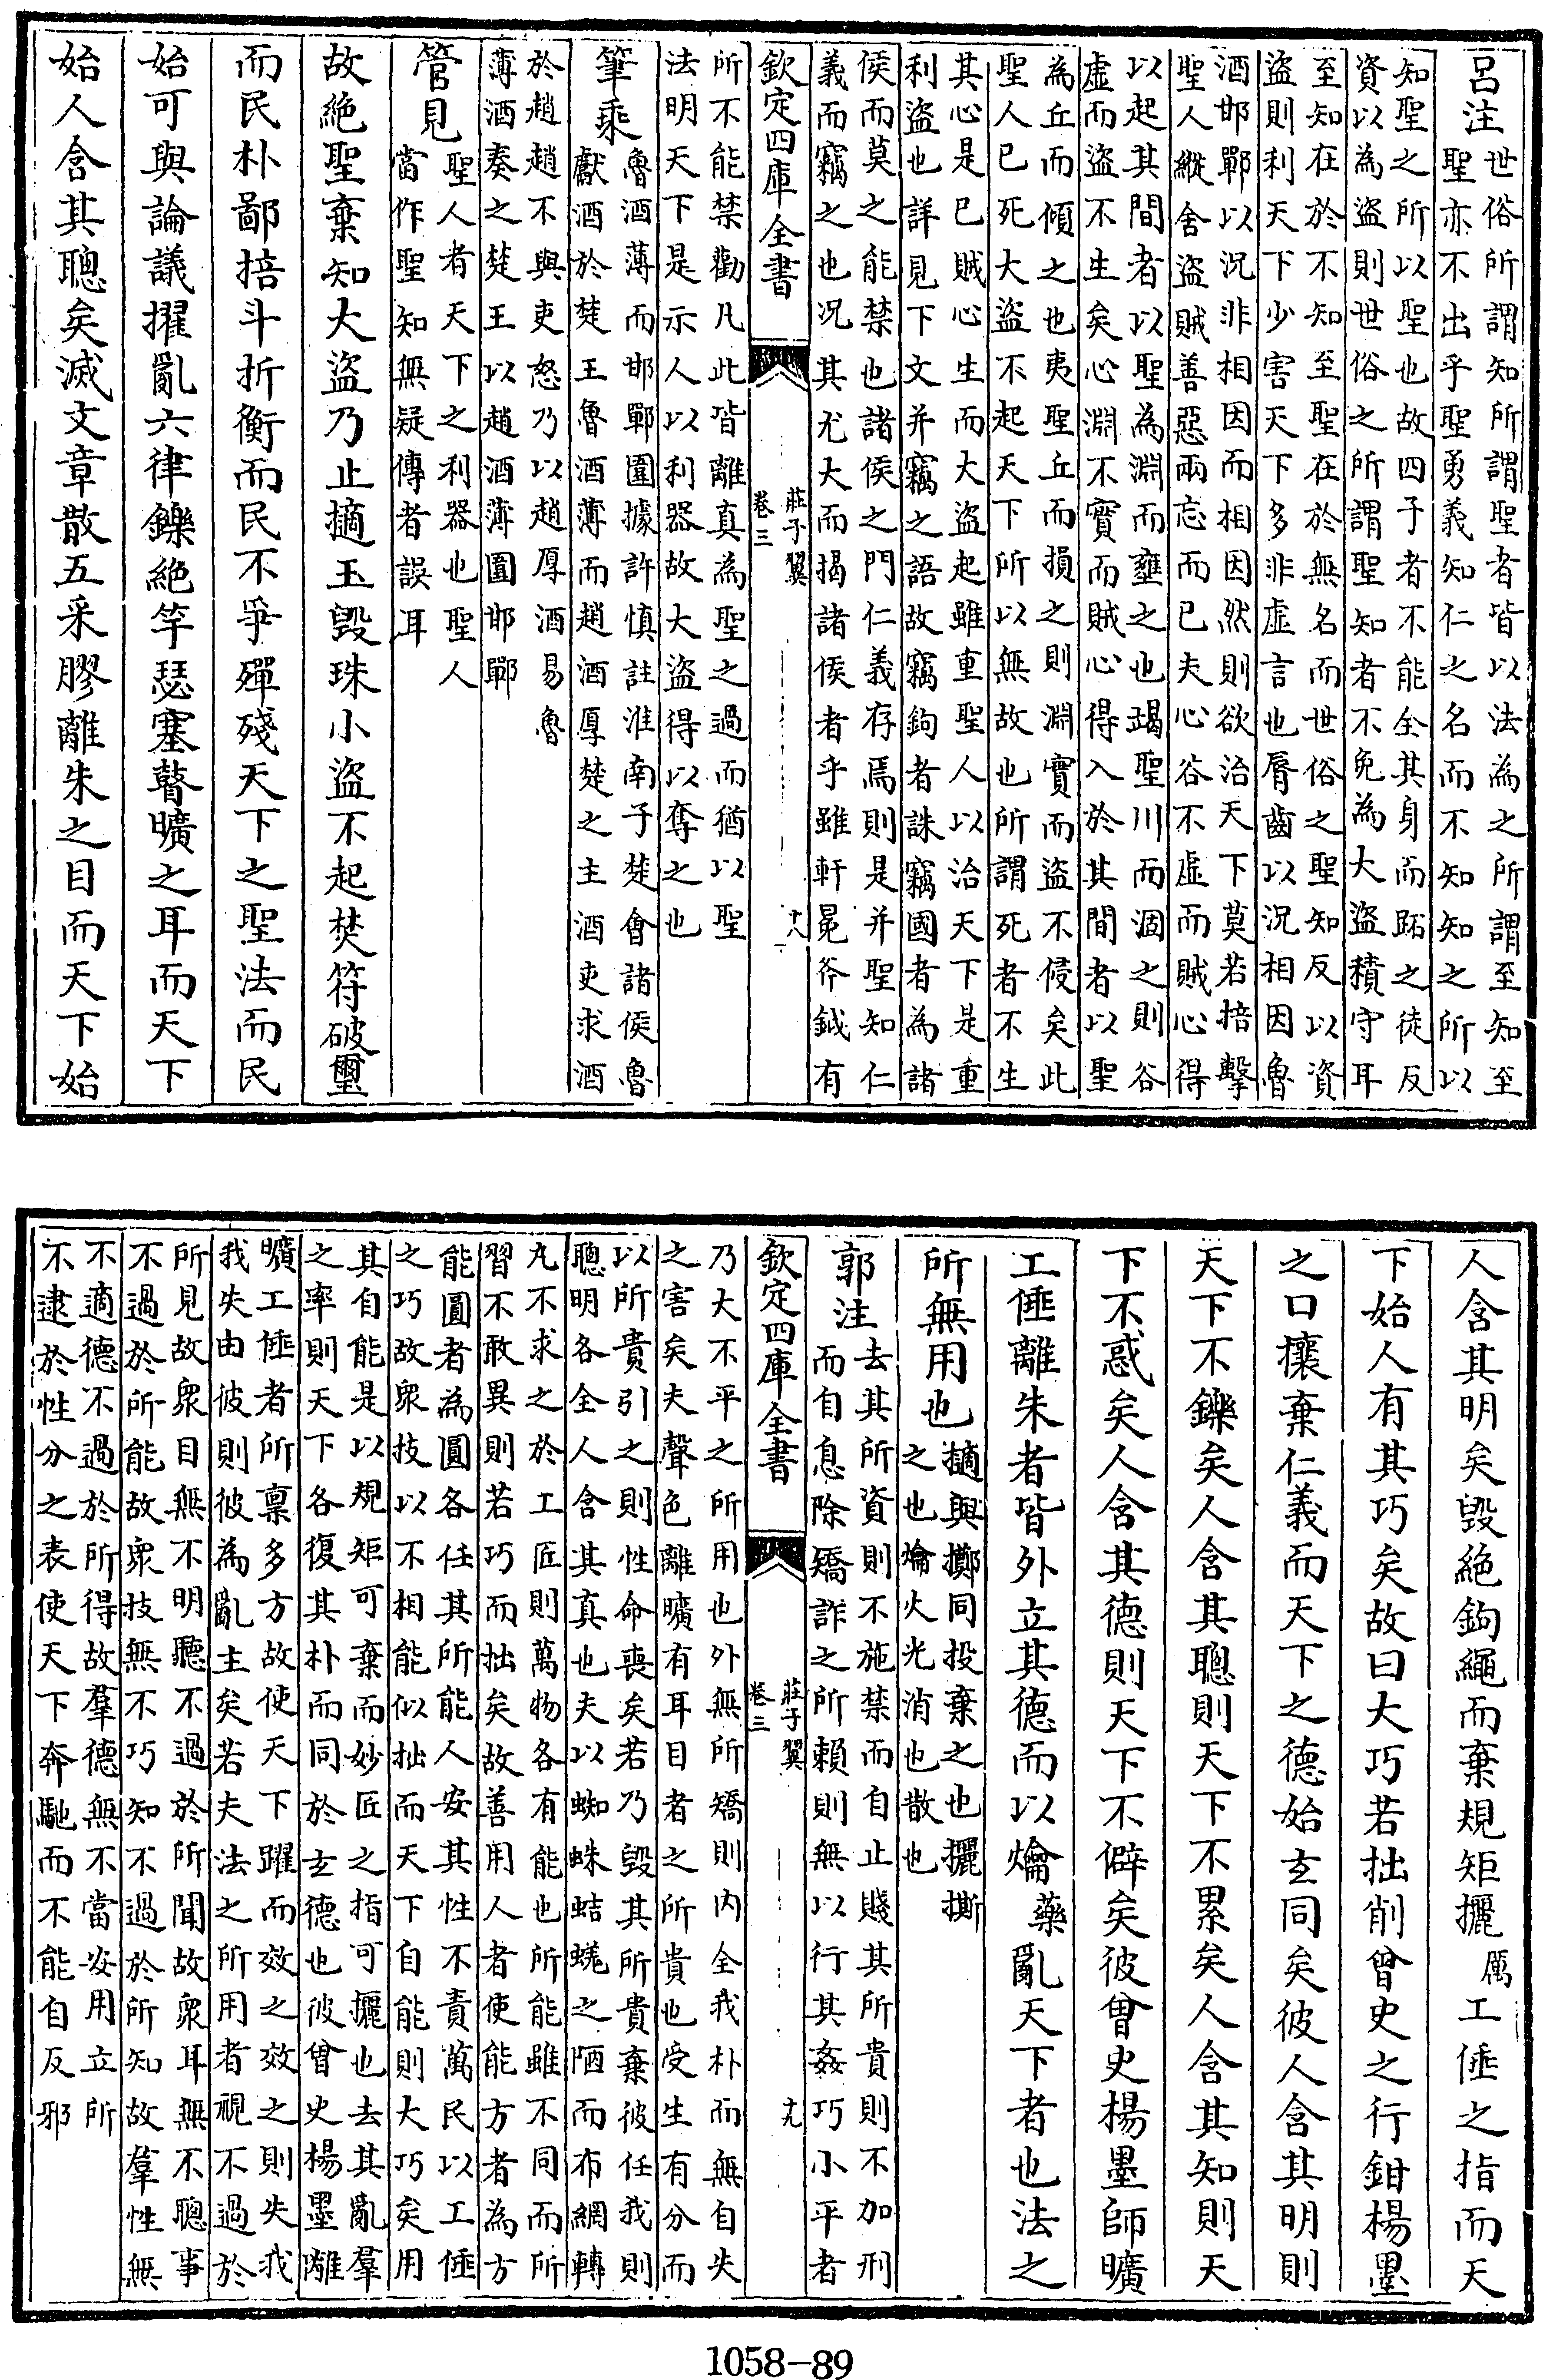 呂注
世俗所謂知所謂聖者皆以法為之所謂至知至
聖亦不出乎聖勇義知仁之名而不知知之所以
知聖之所以聖也故四子者不能全其身而跖之徒反
資以為盜則世俗之所謂聖知者不免為大盜積守耳
至知在於不知至聖在於無名而世俗之聖知反以資
盜則利天下少害天下多非虛言也脣齒以況相因魯
酒邯鄲以況非相因而相因然則欲治天下莫若掊擊
聖人縱舍盜賊善惡兩忘而已夫心谷不虛而賊心得
以起其間者以聖為淵而壅之也竭聖川而涸之則谷
虛而盜不生矣心淵不實而賊心得入於其間者以聖
為丘而傾之也夷聖丘而損之則淵實而盜不侵矣此
聖人已死大盜不起天下所以無故也所謂死者不生
其心是已賊心生而大盜起雖重聖人以治天下是重
利盜也詳見下文并竊之語故竊鉤者誅竊國者為諸
侯而莫之能禁也諸侯之門仁義存焉則是并聖知仁
義而竊之也況其尤大而揭諸侯者乎雖軒冕斧鉞有
欽定四庫全書
莊子翼
卷三
十八
所不能禁勸凡此皆離真為聖之過而猶以聖
法明天下是示人以利器故大盜得以奪之也
筆乘
魯酒薄而邯鄲圍據許慎註淮南子楚會諸侯魯
獻酒於楚王魯酒薄而趙酒厚楚之主酒吏求酒
於趙趙不與吏怒乃以趙厚酒易魯
薄酒奏之楚王以趙酒薄圍邯鄲
管見
聖人者天下之利器也聖人
當作聖知無疑傳者誤耳
故絕聖棄知大盜乃止擿玉毀珠小盜不起焚符破璽
而民朴鄙掊斗折衡而民不爭殫殘天下之聖法而民
始可與論議擢亂六律鑠絕竽瑟塞瞽曠之耳而天下
始人含其聰矣滅文章散五采膠離朱之目而天下始
人含其明矣毀絕鉤繩而棄規矩攦厲工倕之指而天
下始人有其巧矣故曰大巧若拙削曾史之行鉗楊墨
之口攘棄仁義而天下之德始玄同矣彼人含其明則
天下不鑠矣人含其聰則天下不累矣人含其知則天
下不惑矣人含其德則天下不僻矣彼曾史楊墨師曠
工倕離朱者皆外立其德而以爚藥亂天下者也法之
所無用也
擿與擲同投棄之也攦撕
之也爚火光消也散也
郭注
去其所資則不施禁而自止賤其所貴則不加刑
而自息除矯詐之所賴則無以行其姦巧小平者
欽定四庫全書
莊子翼
卷三
十九
乃大不平之所用也外無所矯則内全我朴而無自失
之害矣夫聲色離曠有耳目者之所貴也受生有分而
以所貴引之則性命喪矣若乃毀其所貴棄彼任我則
聰明各全人含其真也夫以蜘蛛蛣蜣之陋而布網轉
丸不求之於工匠則萬物各有能也所能雖不同而所
習不敢異則若巧而拙矣故善用人者使能方者為方
能圓者為圓各任其所能人安其性不責萬民以工倕
之巧故衆技以不相能似拙而天下自能則大巧矣用
其自能是以規矩可棄而妙匠之指可攦也去其亂羣
之率則天下各復其朴而同於玄德也彼曾史楊墨離
曠工倕者所稟多方故使天下躍而效之效之則失我
我失由彼則彼為亂主矣若夫法之所用者視不過於
所見故衆目無不明聽不過於所聞故衆耳無不聰事
不過於所能故衆技無不巧知不過於所知故羣性無
不適德不過於所得故羣德無不當安用立所
不逮於性分之表使天下奔馳而不能自反邪
1058-89